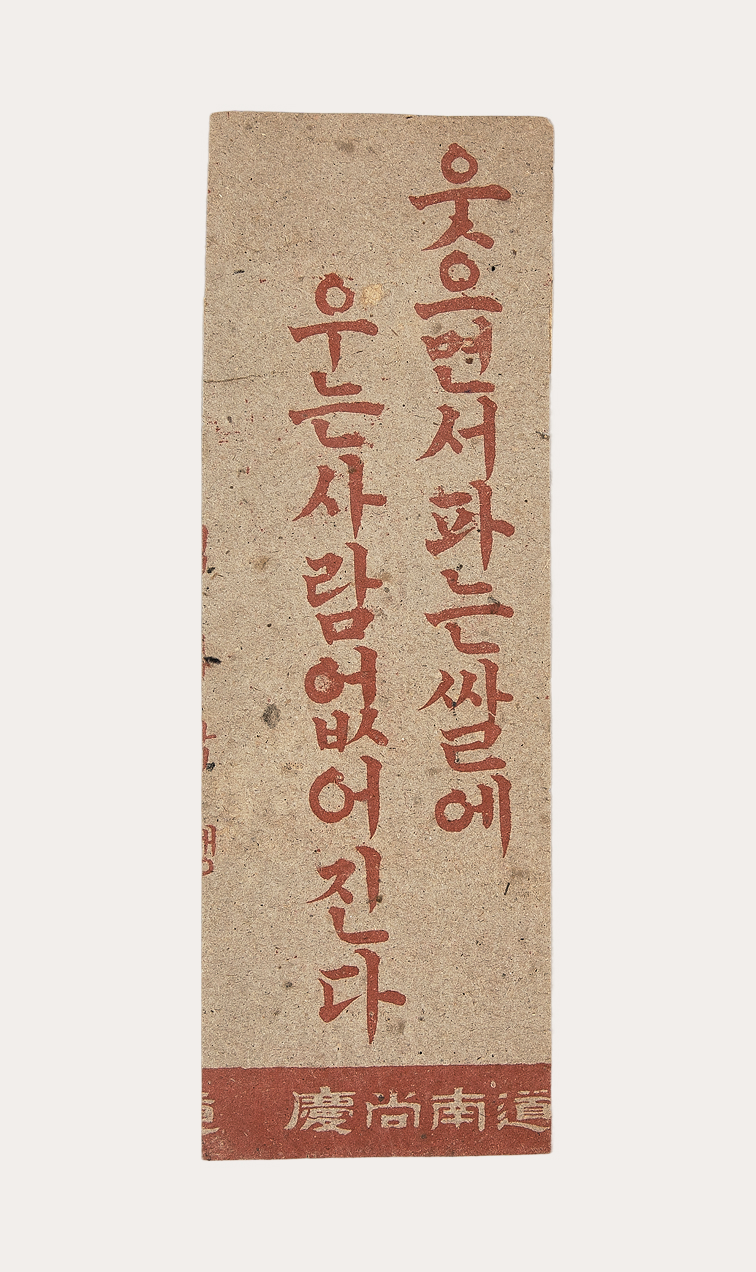 웃으면서파는쌀에
우는사람없어진다
慶尚南道